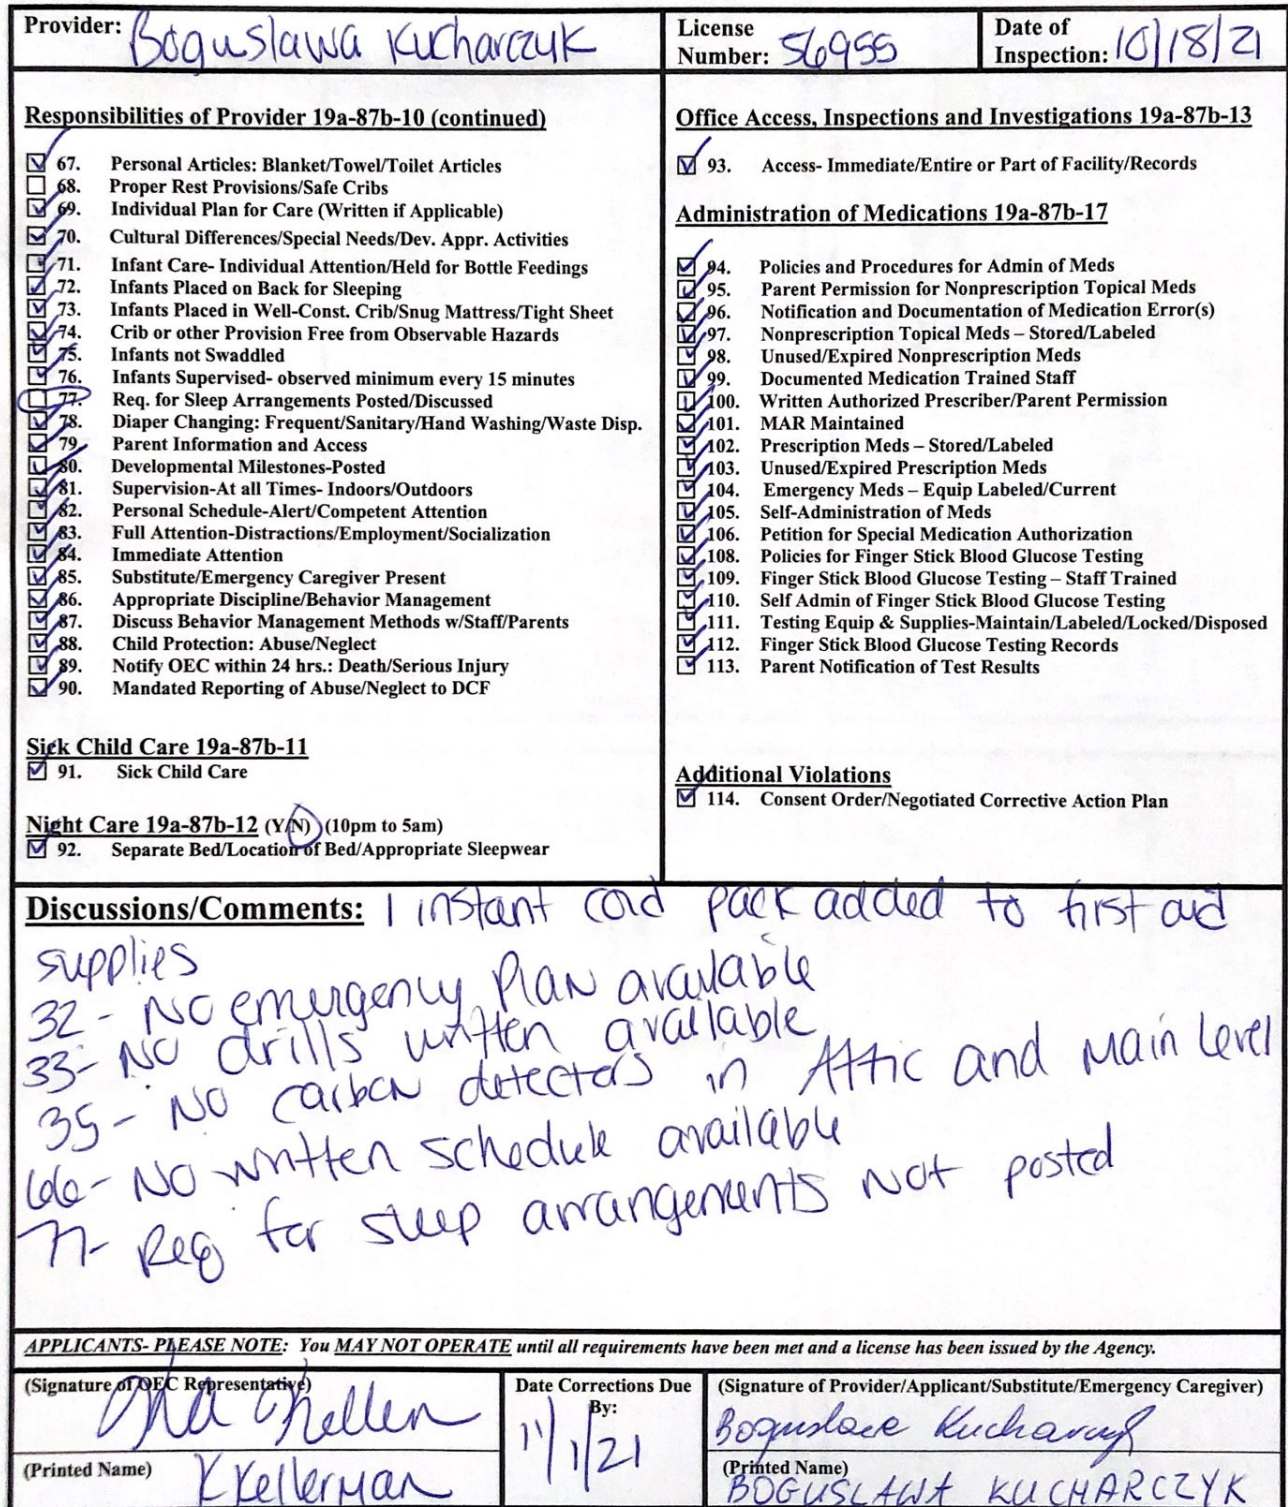 Provider: Boguslawa Kucharczyk
License Number: 56955
Date of Inspection: 10/18/21
Responsibilities of Provider 19a-87b-10 (continued)
67. Personal Articles: Blanket/Towel/Toilet Articles
68. Proper Rest Provisions/Safe Cribs
69. Individual Plan for Care (Written if Applicable)
70. Cultural Differences/Special Needs/Dev. Appr. Activities
71. Infant Care- Individual Attention/Held for Bottle Feedings
72. Infants Placed on Back for Sleeping
73. Infants Placed in Well-Const. Crib/Snug Mattress/Tight Sheet
74. Crib or other Provision Free from Observable Hazards
75. Infants not Swaddled
76. Infants Supervised- observed minimum every 15 minutes
77. Req. for Sleep Arrangements Posted/Discussed
78. Diaper Changing: Frequent/Sanitary/Hand Washing/Waste Disp.
79. Parent Information and Access
80. Developmental Milestones-Posted
81. Supervision-At all Times- Indoors/Outdoors
82. Personal Schedule-Alert/Competent Attention
83. Full Attention-Distractions/Employment/Socialization
84. Immediate Attention
85. Substitute/Emergency Caregiver Present
86. Appropriate Discipline/Behavior Management
87. Discuss Behavior Management Methods w/Staff/Parents
88. Child Protection: Abuse/Neglect
89. Notify OEC within 24 hrs.: Death/Serious Injury
90. Mandated Reporting of Abuse/Neglect to DCF
Sick Child Care 19a-87b-11
91. Sick Child Care
Night Care 19a-87b-12 (Y/N) (10pm to 5am)
92. Separate Bed/Location of Bed/Appropriate Sleepwear
Office Access, Inspections and Investigations 19a-87b-13
93. Access- Immediate/Entire or Part of Facility/Records
Administration of Medications 19a-87b-17
94. Policies and Procedures for Admin of Meds
95. Parent Permission for Nonprescription Topical Meds
96. Notification and Documentation of Medication Error(s)
97. Nonprescription Topical Meds – Stored/Labeled
98. Unused/Expired Nonprescription Meds
99. Documented Medication Trained Staff
100. Written Authorized Prescriber/Parent Permission
101. MAR Maintained
102. Prescription Meds – Stored/Labeled
103. Unused/Expired Prescription Meds
104. Emergency Meds – Equip Labeled/Current
105. Self-Administration of Meds
106. Petition for Special Medication Authorization
108. Policies for Finger Stick Blood Glucose Testing
109. Finger Stick Blood Glucose Testing – Staff Trained
110. Self Admin of Finger Stick Blood Glucose Testing
111. Testing Equip & Supplies-Maintain/Labeled/Locked/Disposed
112. Finger Stick Blood Glucose Testing Records
113. Parent Notification of Test Results
Additional Violations
114. Consent Order/Negotiated Corrective Action Plan
Discussions/Comments: 1 instant cold pack added to first aid
supplies
32- No emergency Plan available
33- No drills written available
35- No carbon detectors in Attic and Main level
66- No written schedule available
77- Req for sleep arrangements not posted
APPLICANTS- PLEASE NOTE: You MAY NOT OPERATE until all requirements have been met and a license has been issued by the Agency.
(Signature of OEC Representative)
(Printed Name) K Kellerman
Date Corrections Due By:
11/1/21
(Signature of Provider/Applicant/Substitute/Emergency Caregiver)
(Printed Name)
BOGUSLAWA KUCHARCZYK